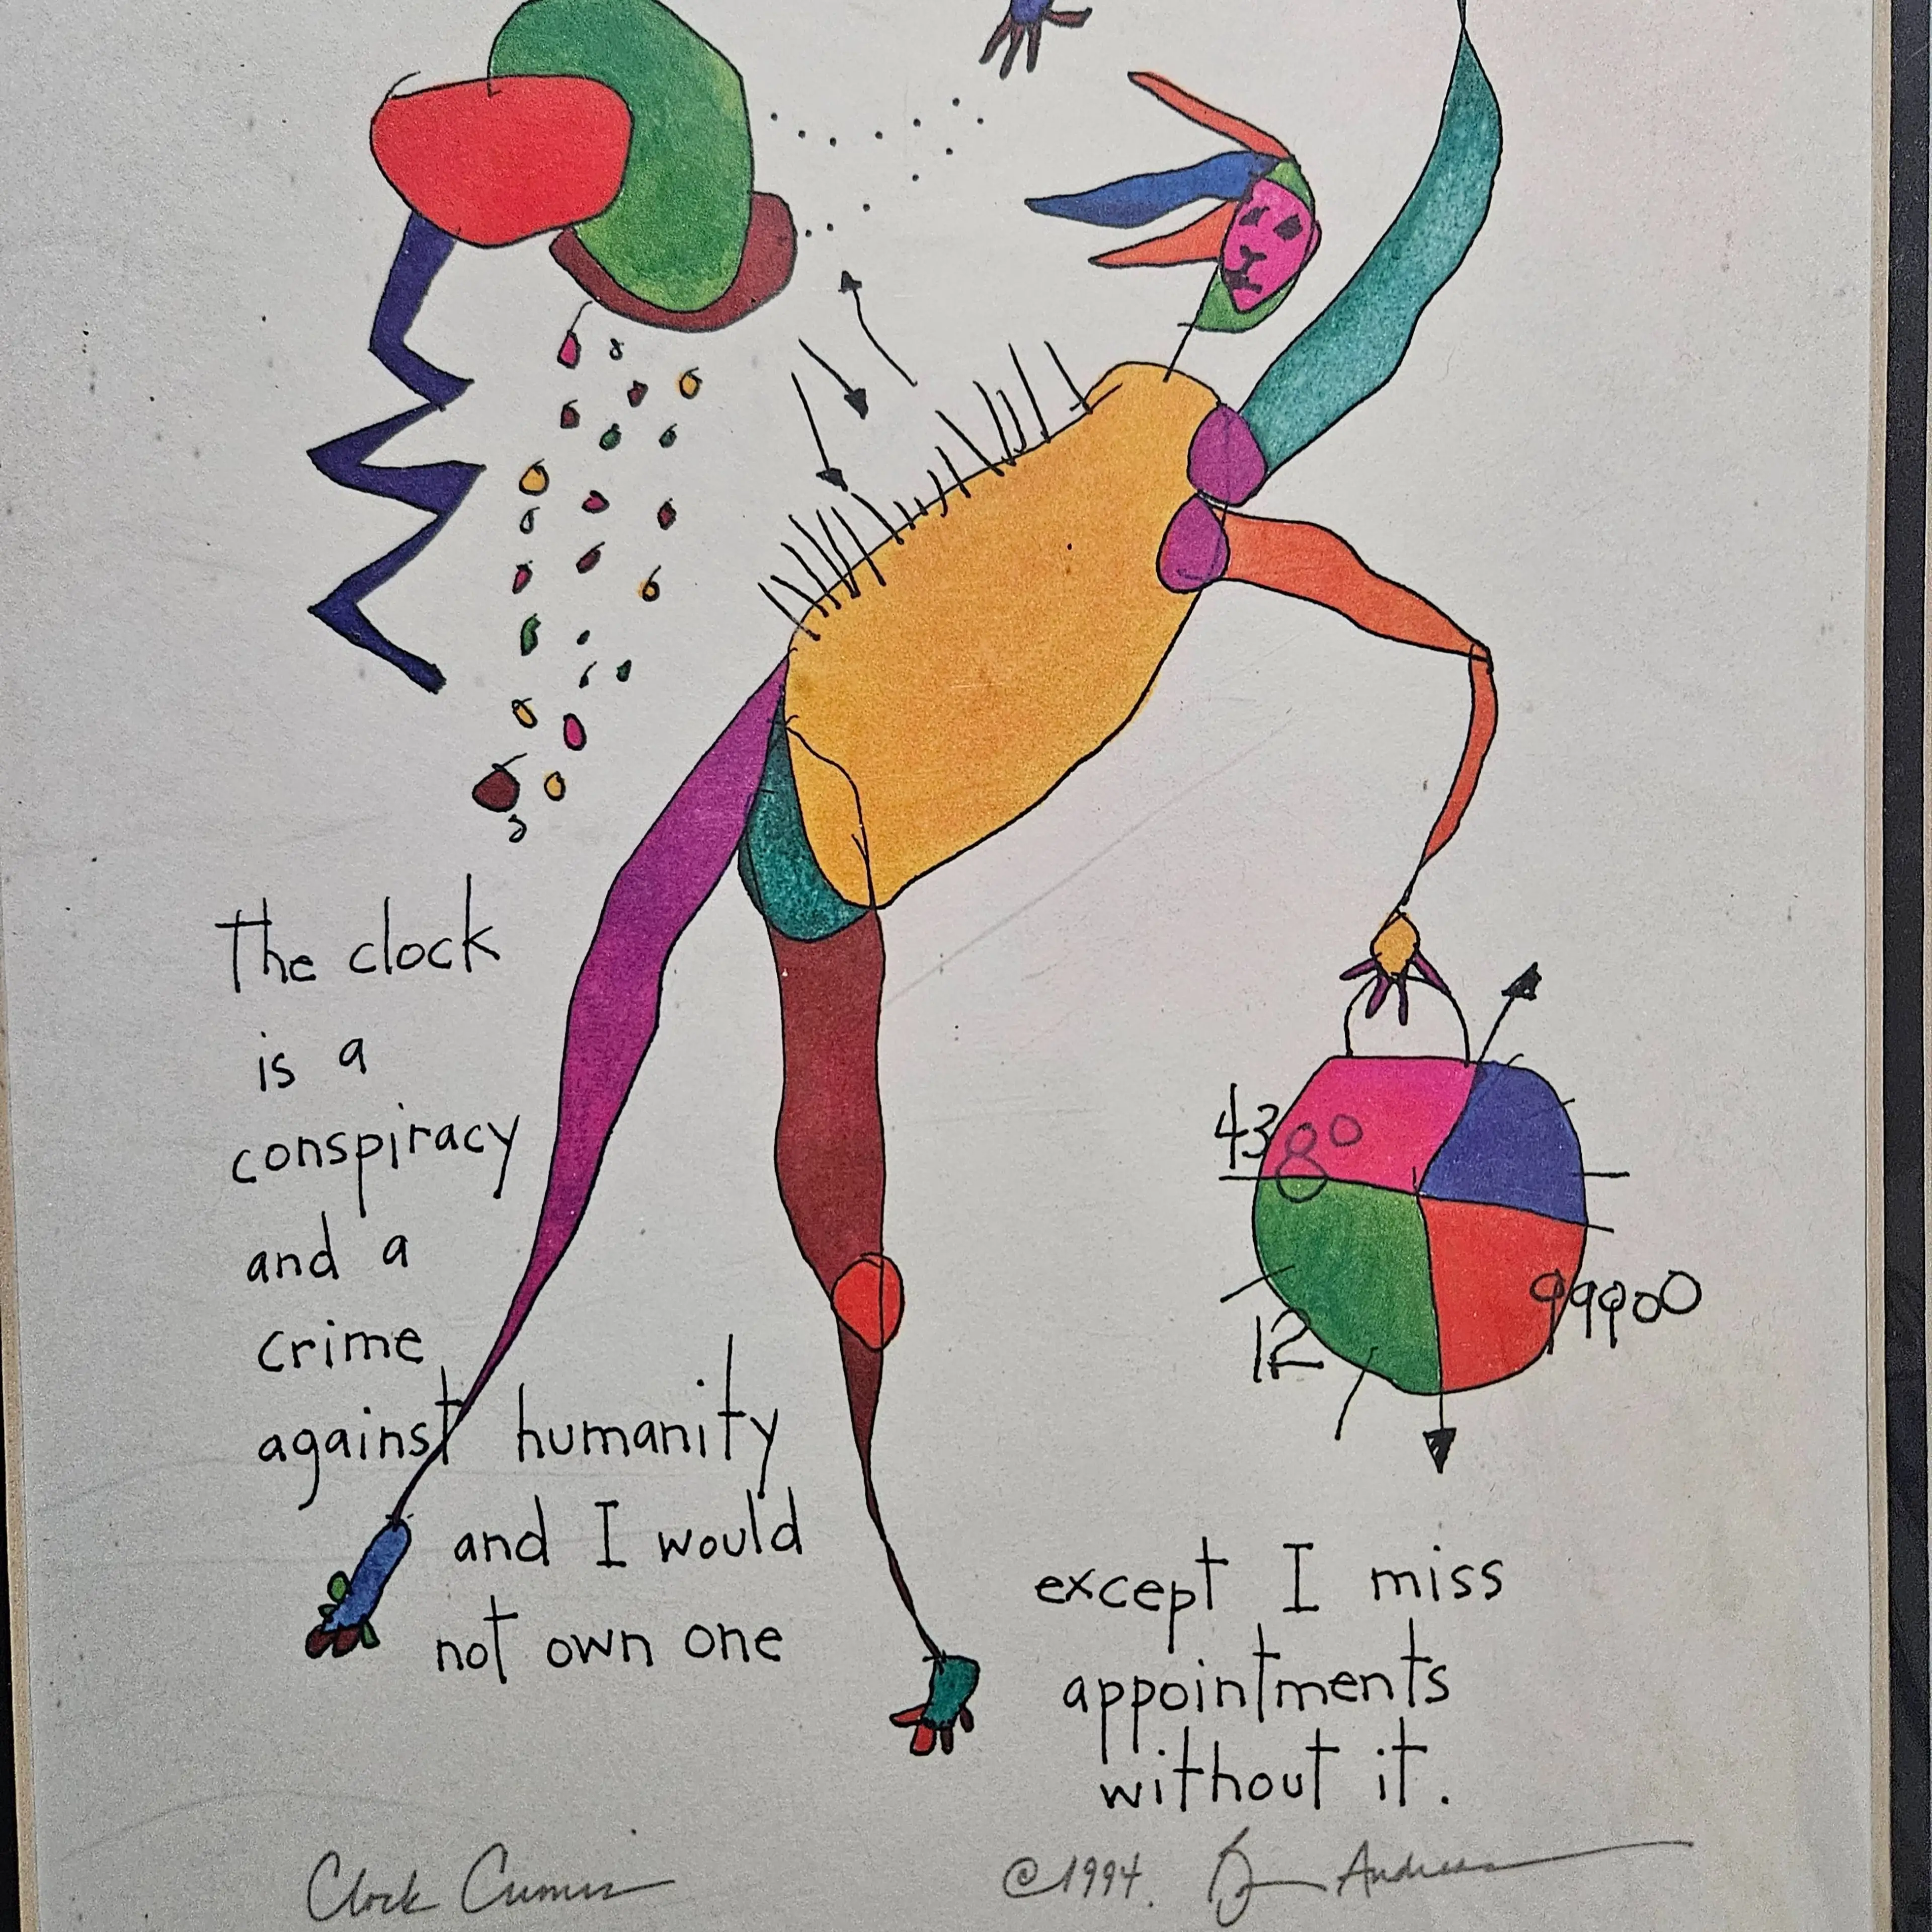 the clock
is a
conspiracy
and a
crime
against humanity
and I would
not own one
except I miss
appointments
without it.
4380
12
99900
Clock Crimes
©1994. Andreas